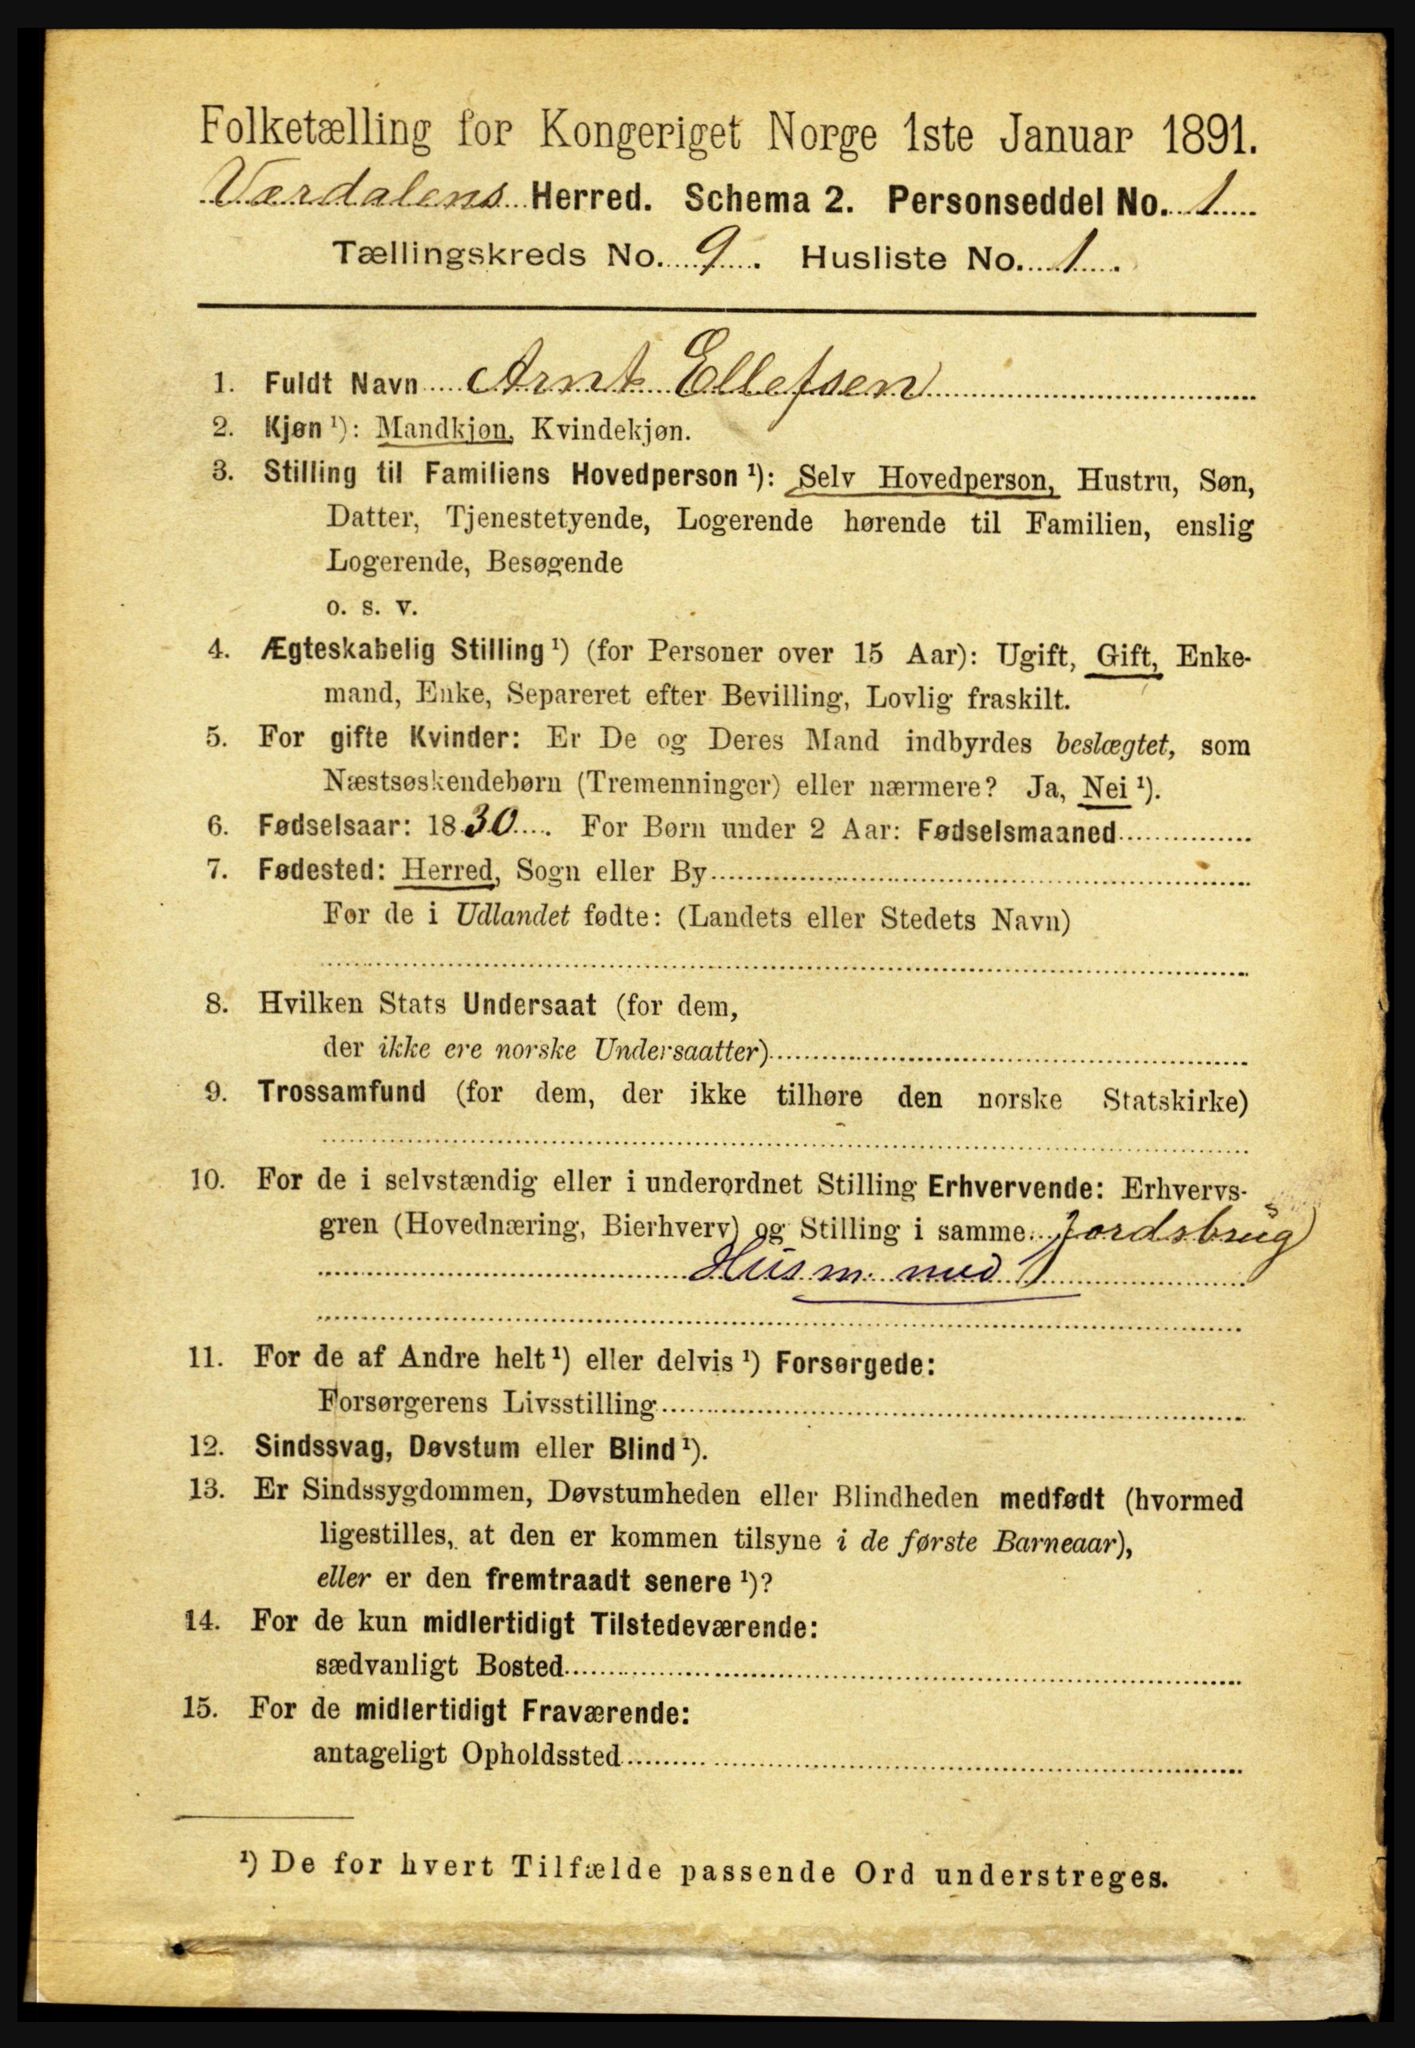 Folketælling for Kongeriget Norge 1ste Januar 1891.
Værdalens Herred. Schema 2. Personseddel No. 1
Tællingskreds No. 9. Husliste No. 1.
1. Fuldt Navn Arnt Ellefsen
2. Kjøn ¹): Mandkjøn, Kvindekjøn.
3. Stilling til Familiens Hovedperson ¹): Selv Hovedperson, Hustru, Søn,
Datter, Tjenestetyende, Logerende hørende til Familien, enslig
Logerende, Besøgende
o. s. v.
4. Ægteskabelig Stilling ¹) (for Personer over 15 Aar): Ugift, Gift, Enke-
mand, Enke, Separeret efter Bevilling, Lovlig fraskilt.
5. For gifte Kvinder: Er De og Deres Mand indbyrdes beslægtet, som
Næstsøskendebørn (Tremenninger) eller nærmere? Ja, Nei ¹).
6. Fødselsaar: 1830. For Børn under 2 Aar: Fødselsmaaned
7. Fødested: Herred, Sogn eller By
For de i Udlandet fødte: (Landets eller Stedets Navn)
8. Hvilken Stats Undersaat (for dem,
der ikke ere norske Undersaatter)
9. Trossamfund (for dem, der ikke tilhøre den norske Statskirke)
10. For de i selvstændig eller i underordnet Stilling Erhvervende: Erhvervs-
gren (Hovednæring, Bierhverv) og Stilling i samme Jordsbrug
Husm. med J
11. For de af Andre helt ¹) eller delvis ¹) Forsørgede:
Forsørgerens Livsstilling
12. Sindssvag, Døvstum eller Blind ¹).
13. Er Sindssygdommen, Døvstumheden eller Blindheden medfødt (hvormed
ligestilles, at den er kommen tilsyne i de første Barneaar),
eller er den fremtraadt senere ¹)?
14. For de kun midlertidigt Tilstedeværende:
sædvanligt Bosted
15. For de midlertidigt Fraværende:
antageligt Opholdssted
¹) De for hvert Tilfælde passende Ord understreges.